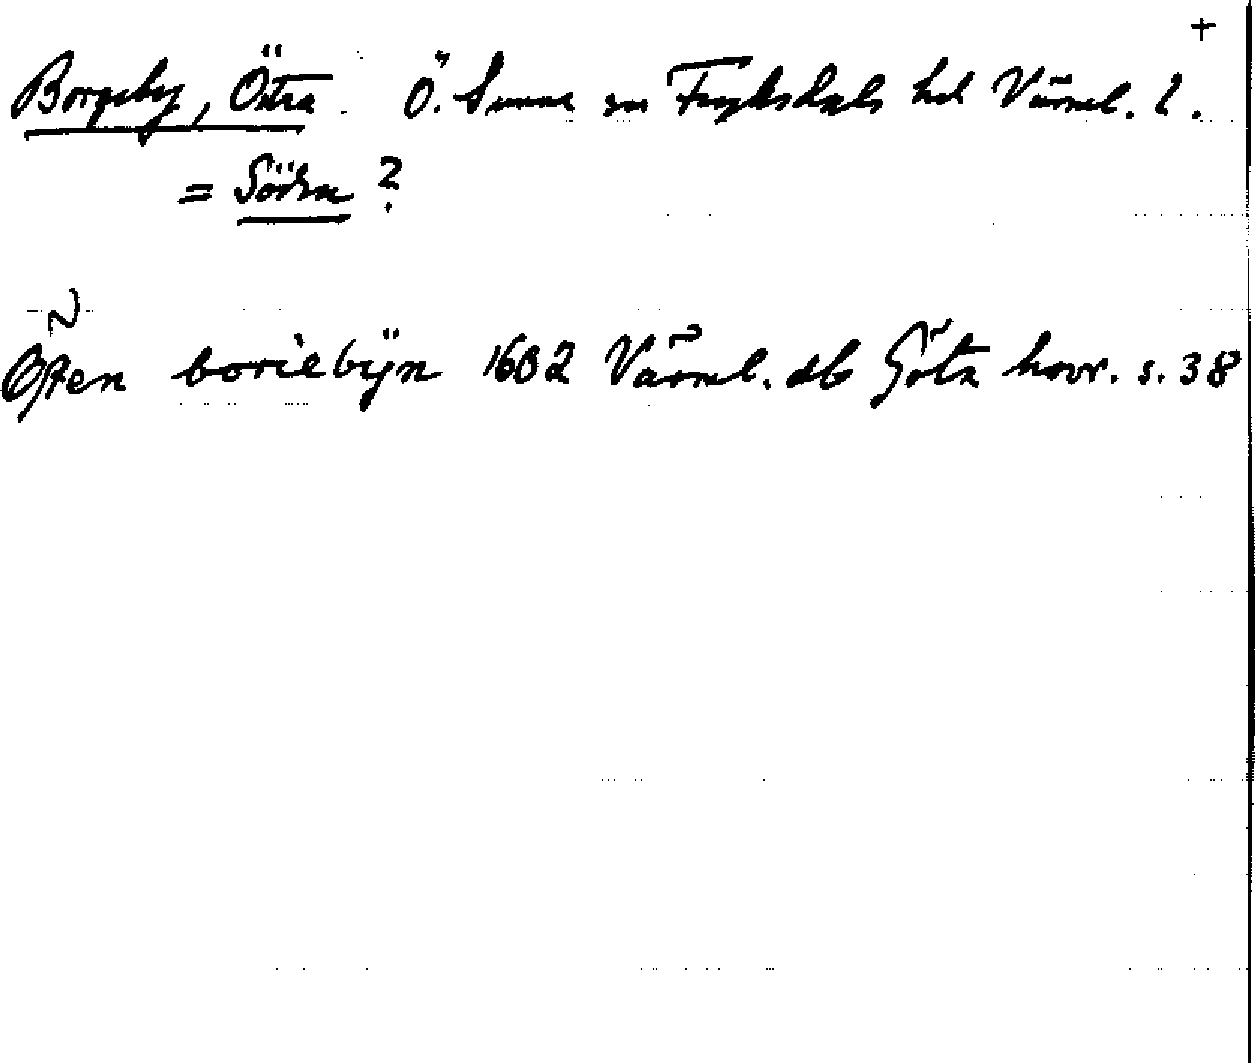 +
Borgeby, Östra. Ö. Sunne sn Fryksdals hd Värml. l.
= Södra ?
Östen boriebÿn 1602 Värml. db Göta hovr. s. 38